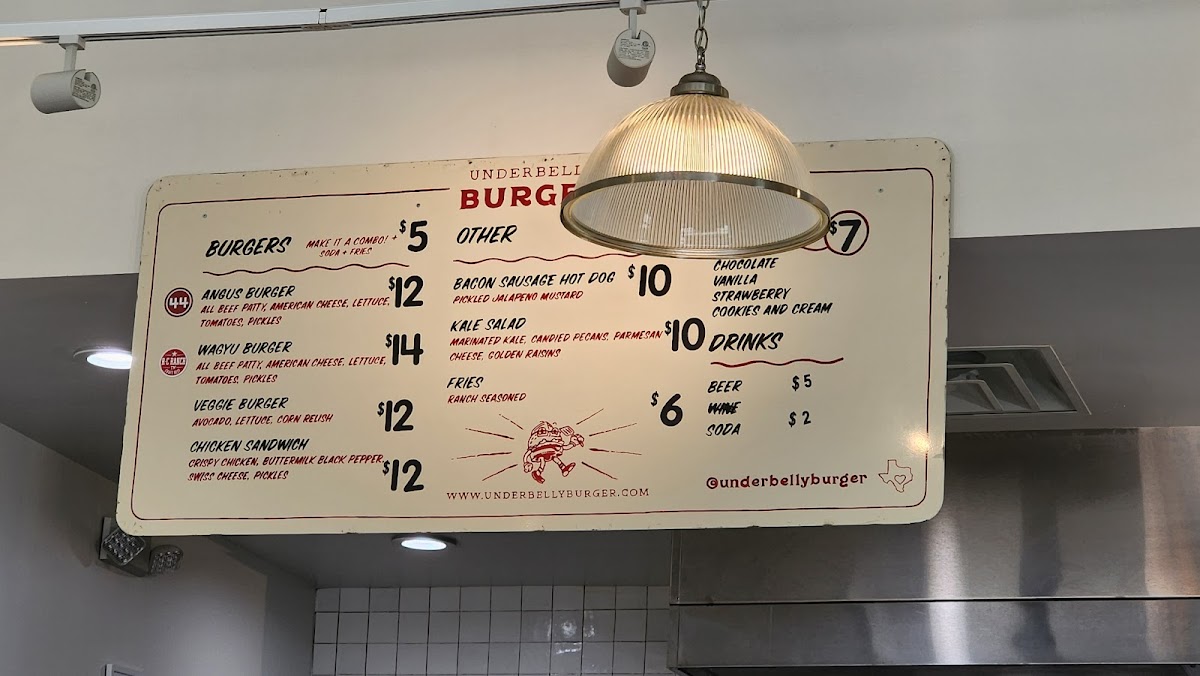 UNDERBELL
BURGE
BURGERS MAKE IT A COMBO! + $5
SODA + FRIES
44 ANGUS BURGER $12
ALL BEEF PATTY, AMERICAN CHEESE, LETTUCE,
TOMATOES, PICKLES
WAGYU BURGER $14
ALL BEEF PATTY, AMERICAN CHEESE, LETTUCE,
TOMATOES, PICKLES
VEGGIE BURGER $12
AVOCADO, LETTUCE, CORN RELISH
CHICKEN SANDWICH
CRISPY CHICKEN, BUTTERMILK BLACK PEPPER, $12
SWISS CHEESE, PICKLES
OTHER
BACON SAUSAGE HOT DOG $10
PICKLED JALAPENO MUSTARD
KALE SALAD
MARINATED KALE, CANDIED PECANS, PARMESAN $10
CHEESE, GOLDEN RAISINS
FRIES
RANCH SEASONED $6
WWW.UNDERBELLYBURGER.COM
$7
CHOCOLATE
VANILLA
STRAWBERRY
COOKIES AND CREAM
DRINKS
BEER $5
WINE
SODA $2
@underbellyburger